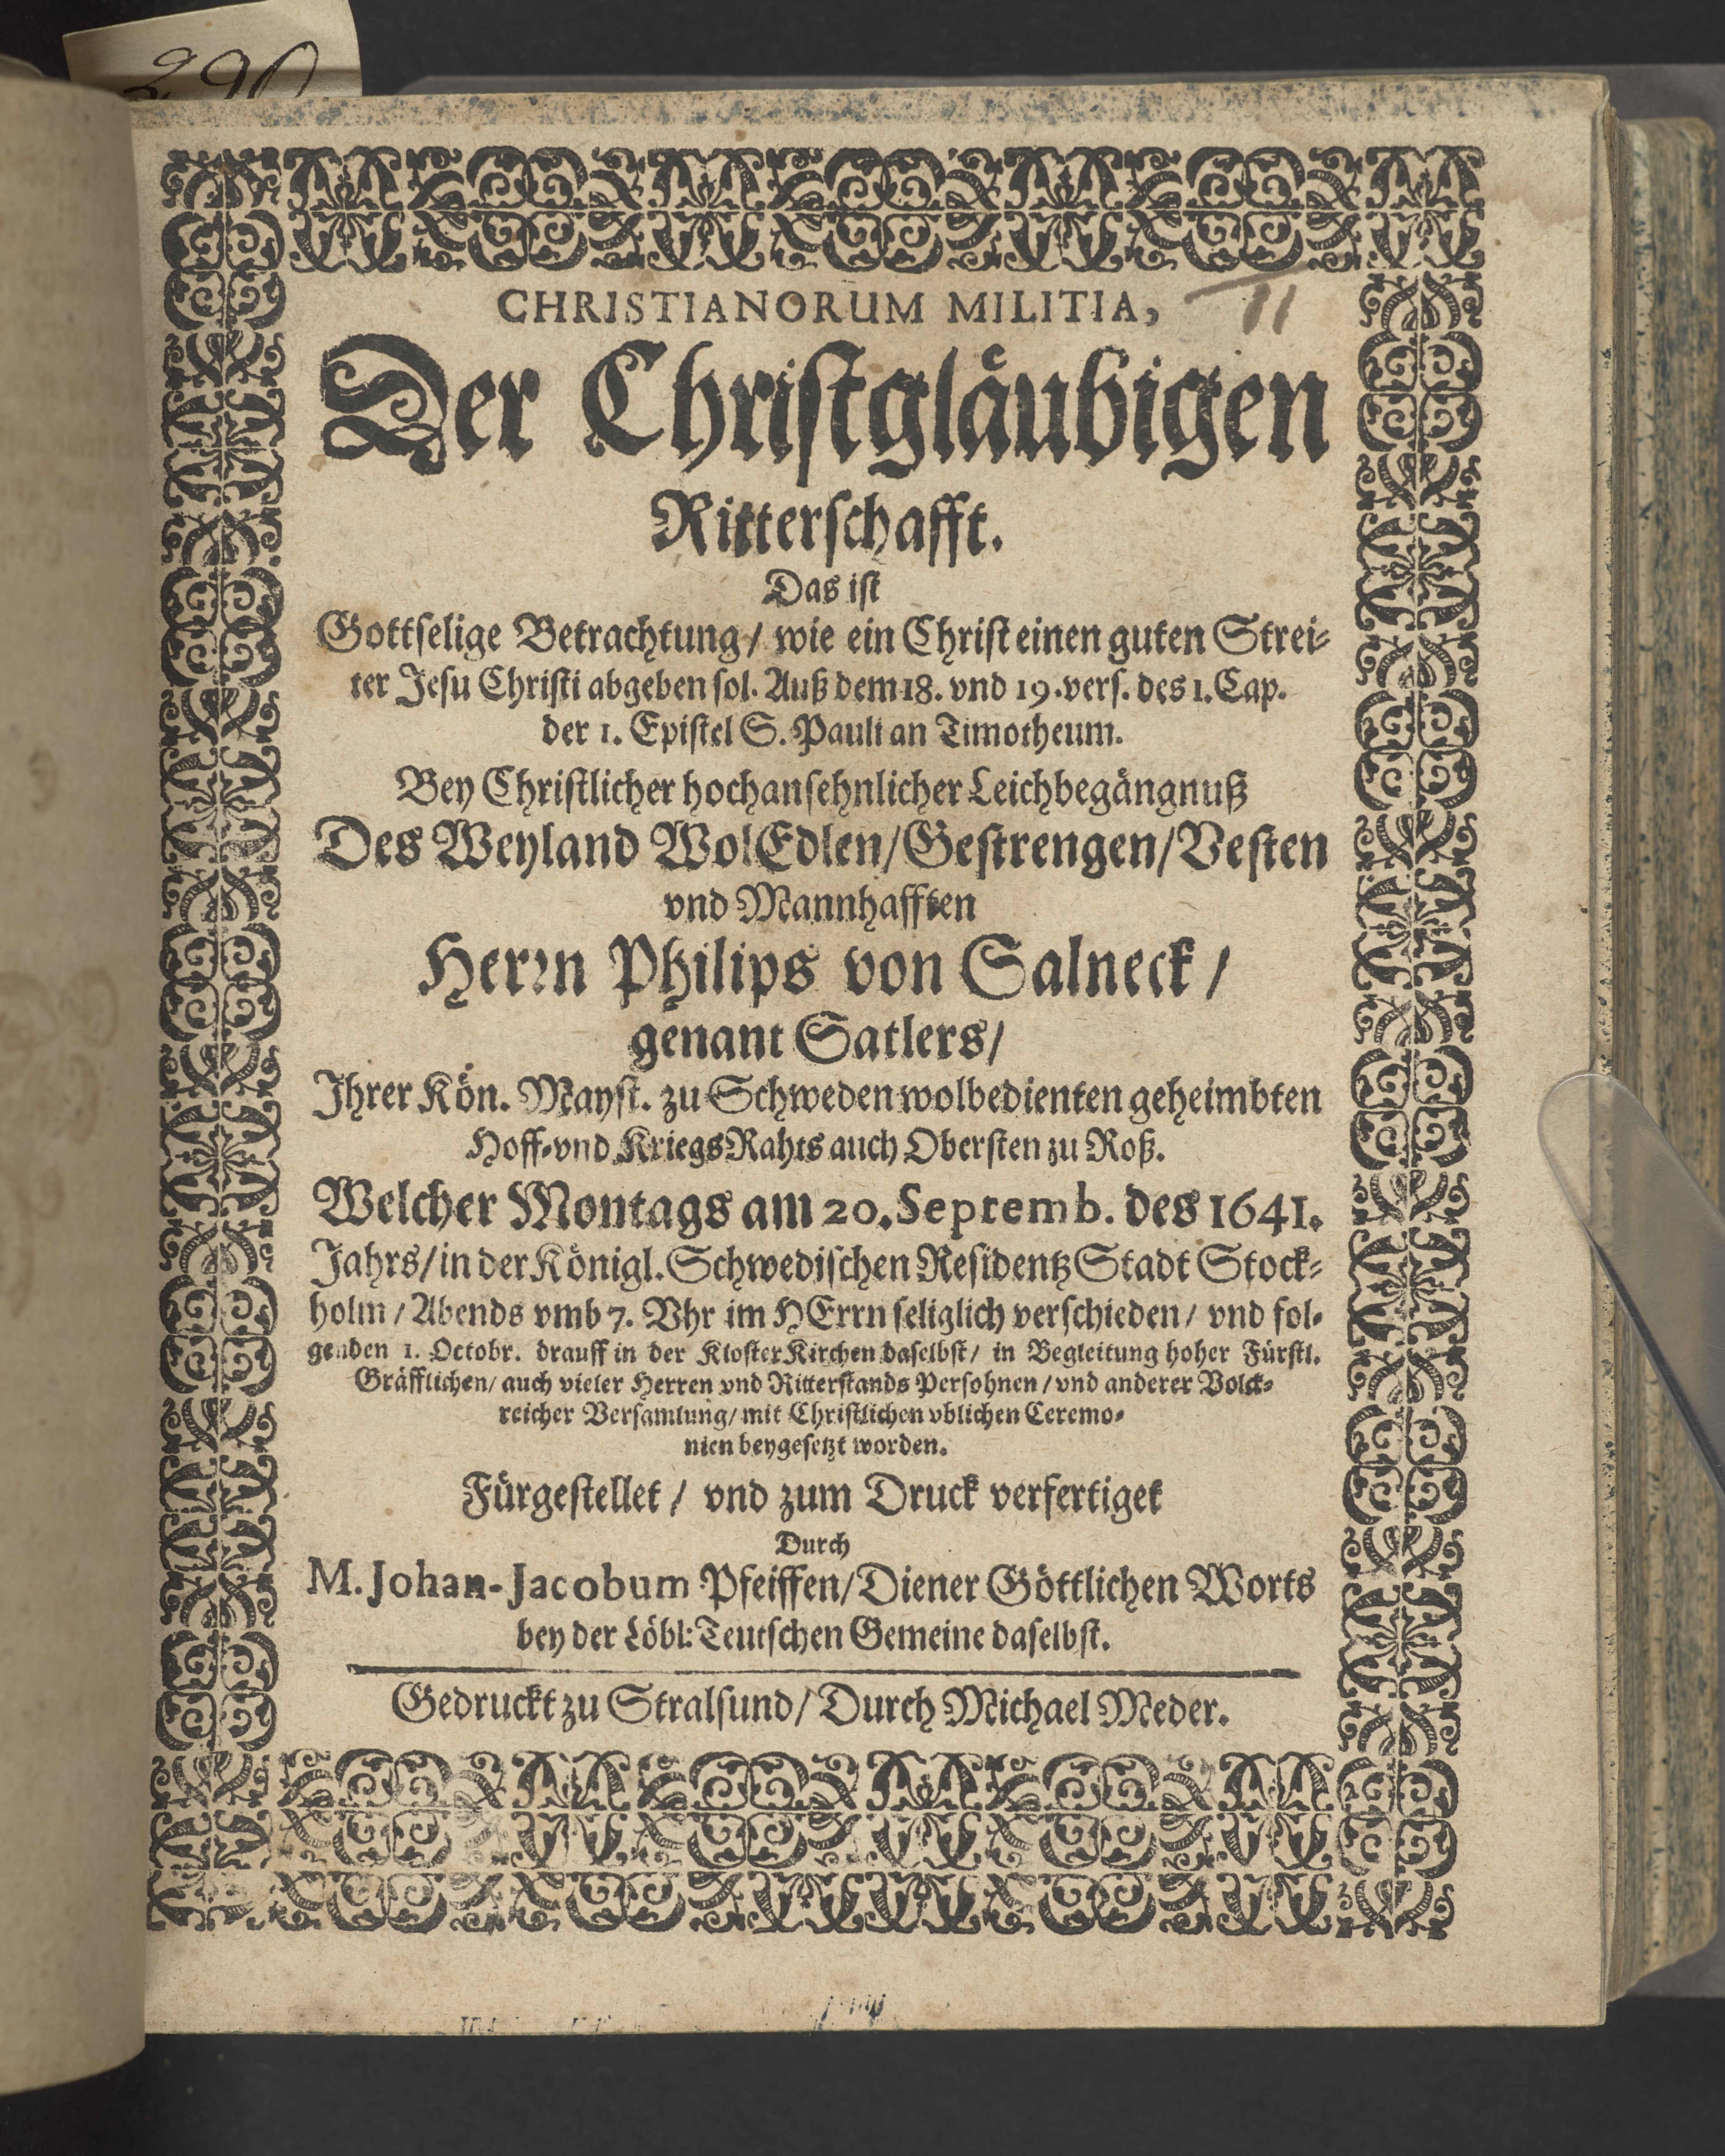 290
CHRISTIANORUM MILITIA,
11
Der Christgläubigen
Ritterschafft.
Das ist
Gottselige Betrachtung/ wie ein Christ einen guten Strei-
ter Jesu Christi abgeben sol. Auß dem 18. vnd 19. vers. des 1. Cap.
der 1. Epistel S. Pauli an Timotheum.
Bey Christlicher hochansehnlicher Leichbegängnuß
Des Weyland WolEdlen/Gestrengen/Vesten
vnd Mannhafften
Herrn Philips von Salneck/
genant Satlers/
Ihrer Kön. Mayst. zu Schweden wolbedienten geheimbten
Hoff-vnd KriegsRahts auch Obersten zu Roß.
Welcher Montags am 20. Septemb. des 1641.
Jahrs/in der Königl. Schwedischen Residentz Stadt Stock-
holm/Abends vmb 7. Vhr im HErrn seliglich verschieden/ vnd fol-
genden 1. Octobr. drauff in der KlosterKirchen daselbst/ in Begleitung hoher Fürstl.
Gräfflichen/ auch vieler Herren vnd Ritterstands Persohnen/vnd anderer Volck-
reicher Versamlung/mit Christlichen vblichen Ceremo-
nien beygesetzt worden.
Fürgestellet/ vnd zum Druck verfertiget
Durch
M. Johan-Jacobum Pfeiffen/Diener Göttlichen Worts
bey der Löbl: Teutschen Gemeine daselbst.
Gedruckt zu Stralsund/ Durch Michael Meder.